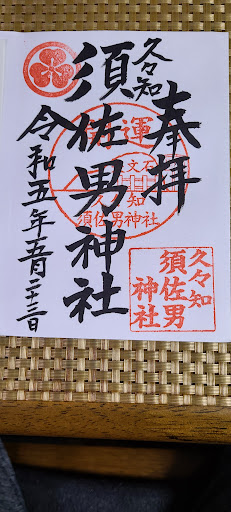 奉拝
久々知
須佐男神社
令和五年五月二十三日
開運
文石
久々知
須佐男神社
久々知
須佐男
神社